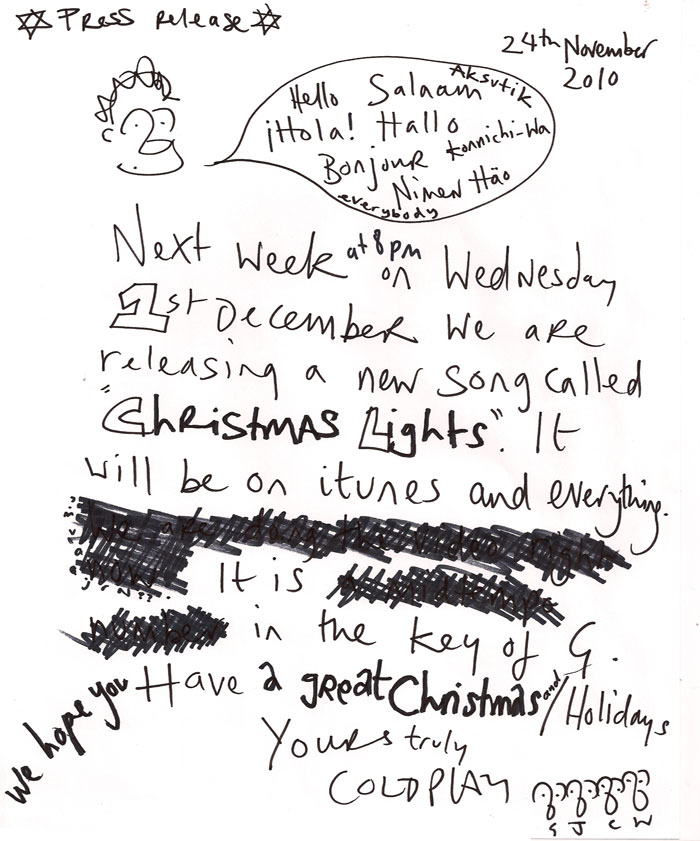 Press release
24th November
2010
Hello Salaam Aksutik
¡Hola! Hallo
Bonjour Konnichi-wa
Nimen Häo
everybody
Next week at 8pm on Wednesday
1st December we are
releasing a new song called
"Christmas Lights". It
will be on itunes and everything.
We are doing the video right
now It is a midtempo
number in the key of G.
We hope you Have a great Christmas and/Holidays
Yours truly
COLDPLAY
G J C W